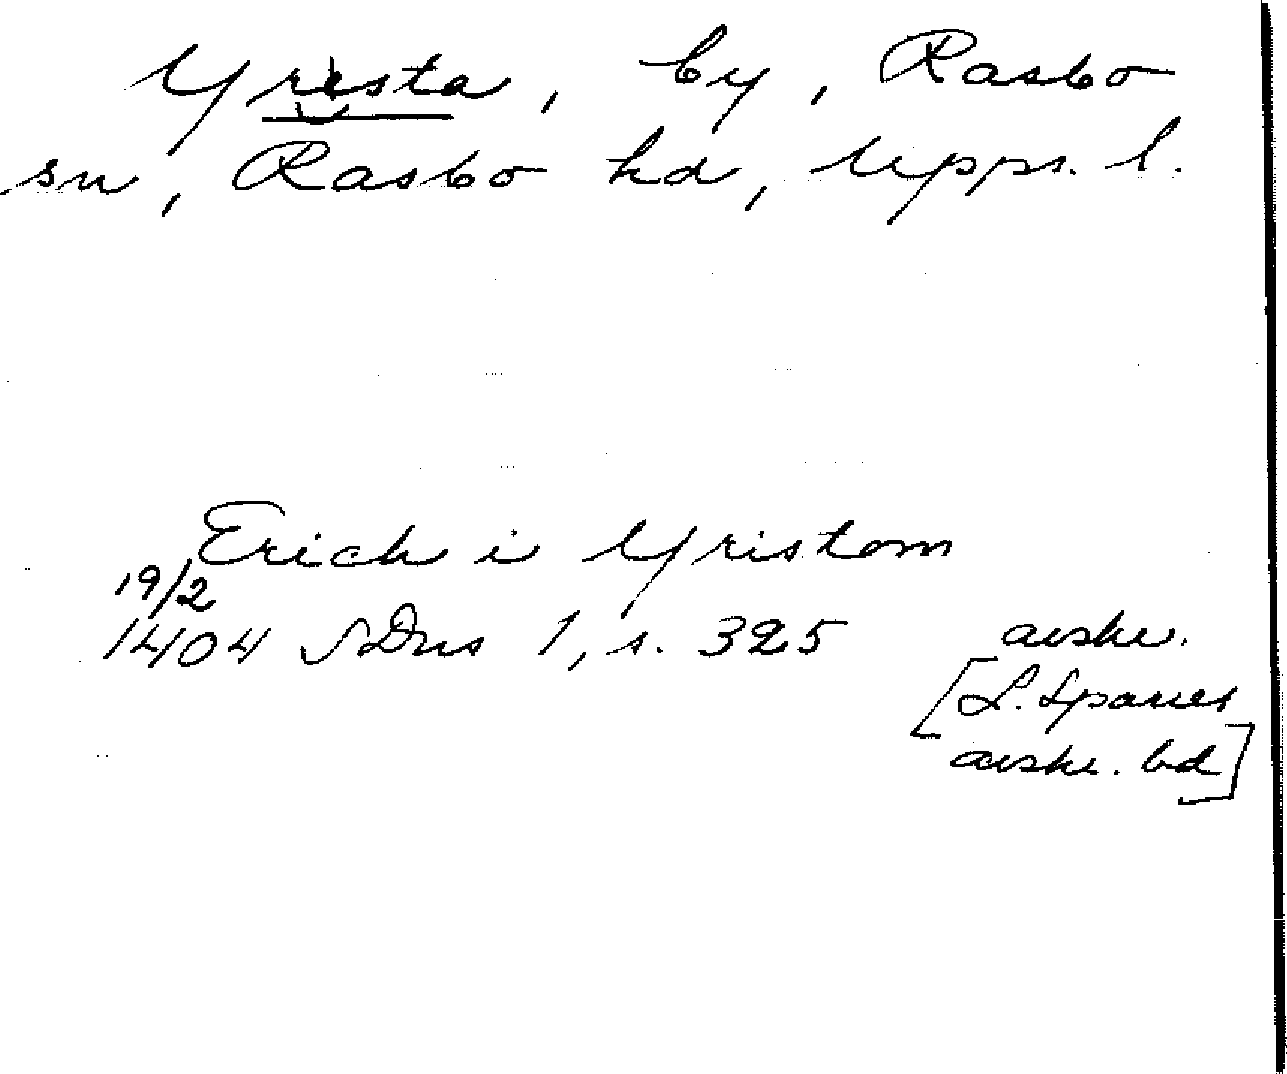 Yrista, by, Rasbo
sn, Rasbo hd, Upps. l.
Erich i Yristom
19/2
1404 SDns 1, s. 325
avskr.
[L. Sparres
avskr. bd]